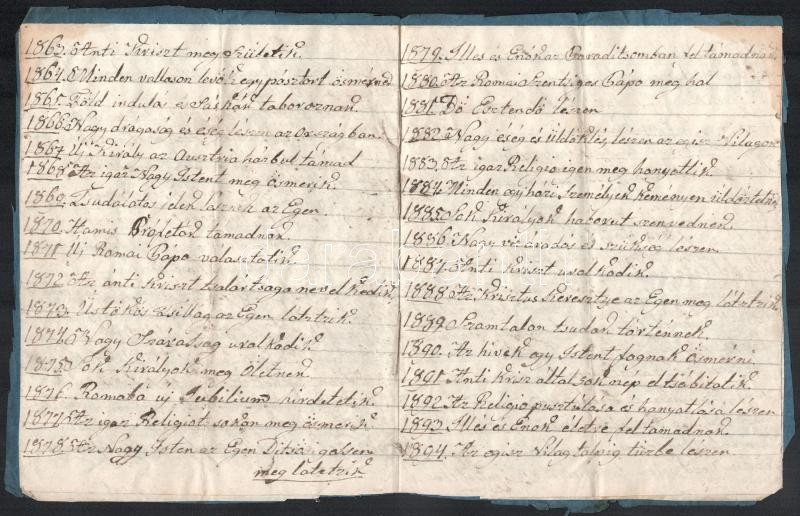 1863. Anti Kriszt meg születik.
1864. Minden valláson levők egy pásztort ösmérned
1865. Föld indulá és Sáskák táboroznak.
1866. Nagy drágaság és éség lészen az országban.
1867 Uj Király az Austria házbul támad
1868 Az igaz Nagy Istent meg ösmerik.
1869. Tsudálatos jelek lésznek az Egen.
1870. Hamis Profeták támadnak.
1871 Uj Romai Pápa választatik.
1872 Az ánti Kriszt tsalártsága nevelkedik.
1873. Üstökös tsillag az Egen látztzik.
1874. Nagy Szárasság uralkodik
1875. Sok Királyok meg öletnek.
1876. Romábá uj Jubilium hirdetetik.
1877 Az igaz Religiot sokan meg ösmerik
1878. Az Nagy Isten az Egen Ditsőségessen
meg látetzik
1879. Illes és Enók az Paraditsomban fel támadnak
1880. Az Romai Szentséges Pápa meg hal
1881. Bő Esztendő lészen
1882. Nagy éség és üldöklés lészen az egisz Világon
1883. Az igaz Religio igen meg hanyatlik.
1884. Minden egyházi Személyek keményen üldöztetnek
1885. Sok Királyok háborut szenvednek.
1886. Nagy vizáradás és szükség lészen
1887. Anti Kriszt uralkodik.
1888. Az Krisztus Keresztye az Egen meg látztzik.
1889. Számtalan tsudák történnek
1890. Az hivek egy Istent fognak ösmérni.
1891 Anti Krisz által sok nép eltsábitatik.
1892 Az Religio pusztulása és hanyatlása lészen
1893. Illes és Enok életre fel támadnak.
1894. Az egisz Világ talpig tüzbe lészen